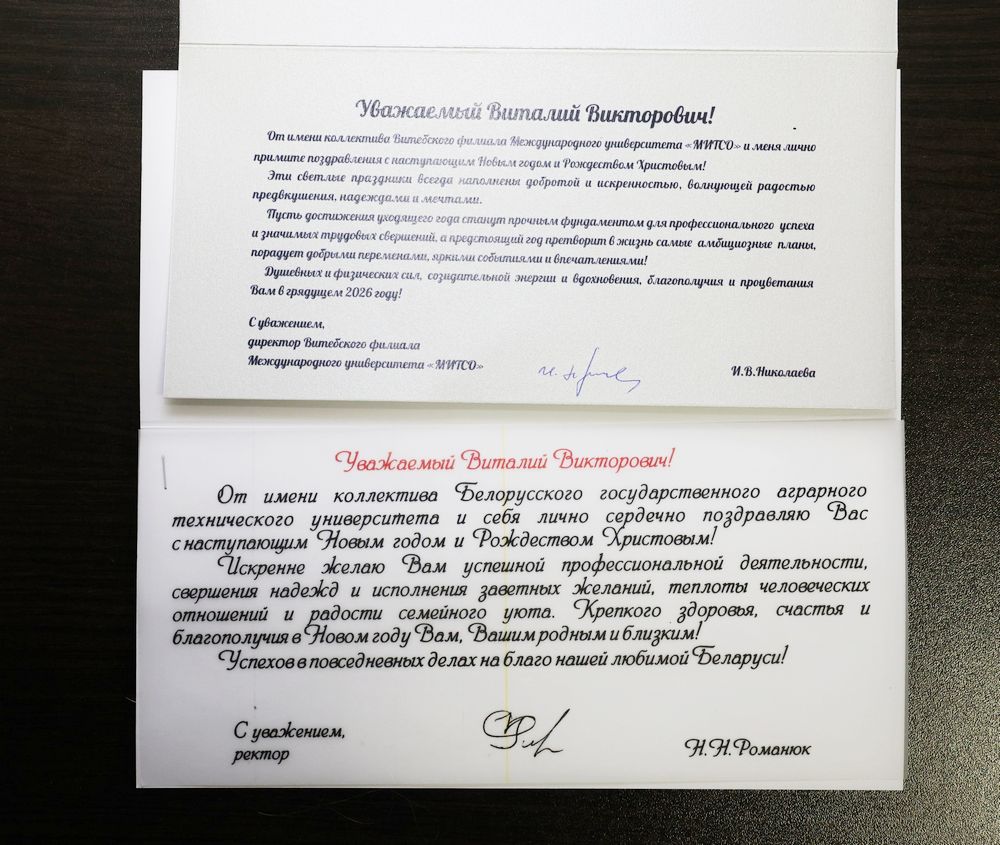 Уважаемый Виталий Викторович!
От имени коллектива Витебского филиала Международного университета «МИТСО» и меня лично
примите поздравления с наступающим Новым годом и Рождеством Христовым!
Эти светлые праздники всегда наполнены добротой и искренностью, волнующей радостью
предвкушения, надеждами и мечтами.
Пусть достижения уходящего года станут прочным фундаментом для профессионального успеха
и значимых трудовых свершений, а предстоящий год претворит в жизнь самые амбициозные планы,
порадует добрыми переменами, яркими событиями и впечатлениями!
Душевных и физических сил, созидательной энергии и вдохновения, благополучия и процветания
Вам в грядущем 2026 году!
С уважением,
директор Витебского филиала
Международного университета «МИТСО»
И.В.Николаева
Уважаемый Виталий Викторович!
От имени коллектива Белорусского государственного аграрного
технического университета и себя лично сердечно поздравляю Вас
с наступающим Новым годом и Рождеством Христовым!
Искренне желаю Вам успешной профессиональной деятельности,
свершения надежд и исполнения заветных желаний, теплоты человеческих
отношений и радости семейного уюта. Крепкого здоровья, счастья и
благополучия в Новом году Вам, Вашим родным и близким!
Успехов в повседневных делах на благо нашей любимой Беларуси!
С уважением,
ректор
Н.Н.Романюк